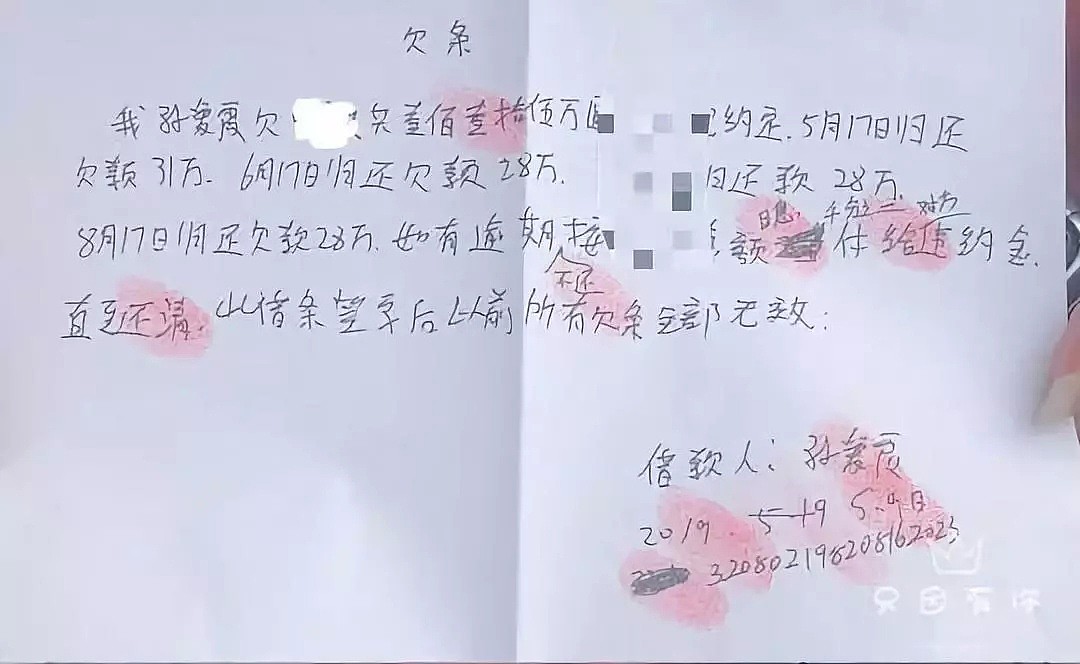 欠条
我孙爱夏欠 共壹佰壹拾伍万 约定.5月17日归还
欠额31万.6月17日归还欠额28万. 还款28万.
8月17日归还欠款28万.如有逾期按 额 日息 付给违约金.
不还
直至还清.此借条签字后以前所有欠条全部无效:
借款人:孙爱夏
2019 5 19 5.9日
320802198208162023
只因有你